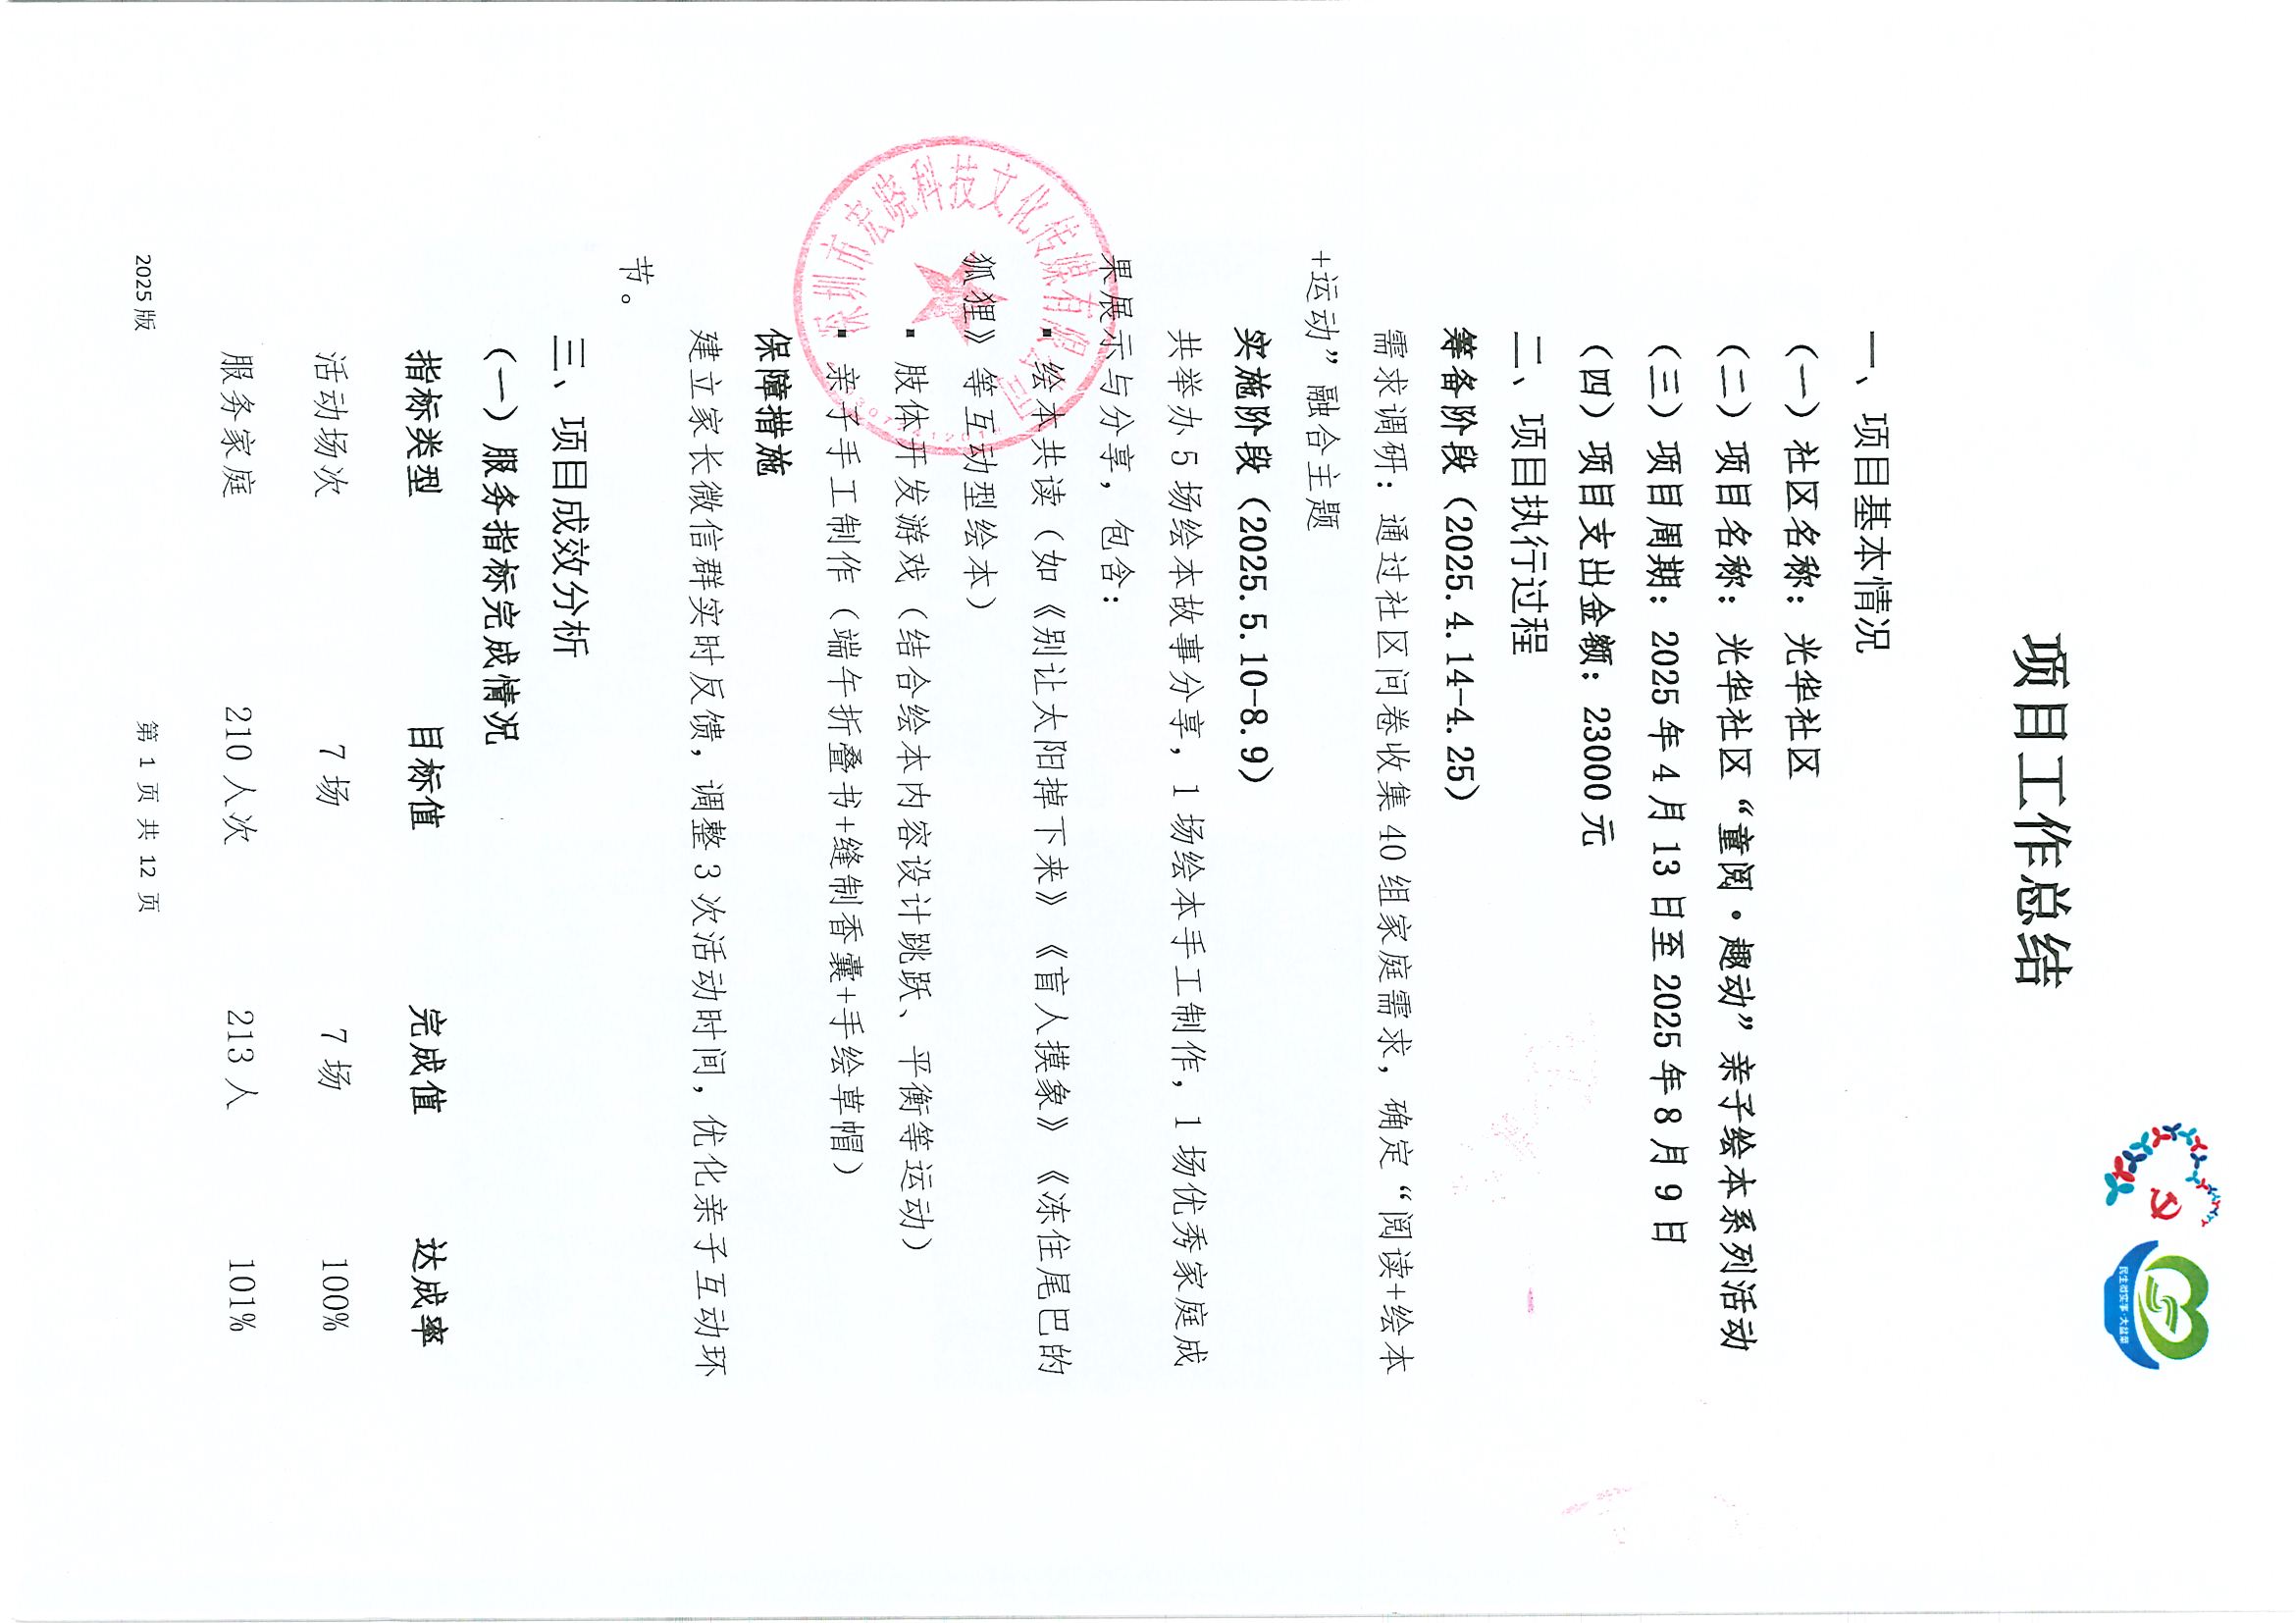 民生微实事·大盆菜
项目工作总结
一、项目基本情况
（一）社区名称：光华社区
（二）项目名称：光华社区“童阅·趣动”亲子绘本系列活动
（三）项目周期：2025年4月13日至2025年8月9日
（四）项目支出金额：23000元
二、项目执行过程
筹备阶段（2025.4.14-4.25）
需求调研：通过社区问卷收集40组家庭需求，确定“阅读+绘本
+运动”融合主题
实施阶段（2025.5.10-8.9）
共举办5场绘本故事分享，1场绘本手工制作，1场优秀家庭成
果展示与分享，包含：
▪ 绘本共读（如《别让太阳掉下来》《盲人摸象》《冻住尾巴的
狐狸》等互动型绘本）
▪ 肢体开发游戏（结合绘本内容设计跳跃、平衡等运动）
▪ 亲子手工制作（端午折叠书+缝制香囊+手绘草帽）
保障措施
建立家长微信群实时反馈，调整3次活动时间，优化亲子互动环
节。
三、项目成效分析
（一）服务指标完成情况
指标类型 目标值 完成值 达成率
活动场次 7场 7场 100%
服务家庭 210人次 213人 101%
2025版 第1页共12页
深圳市宏晓科技文化传媒有限公司